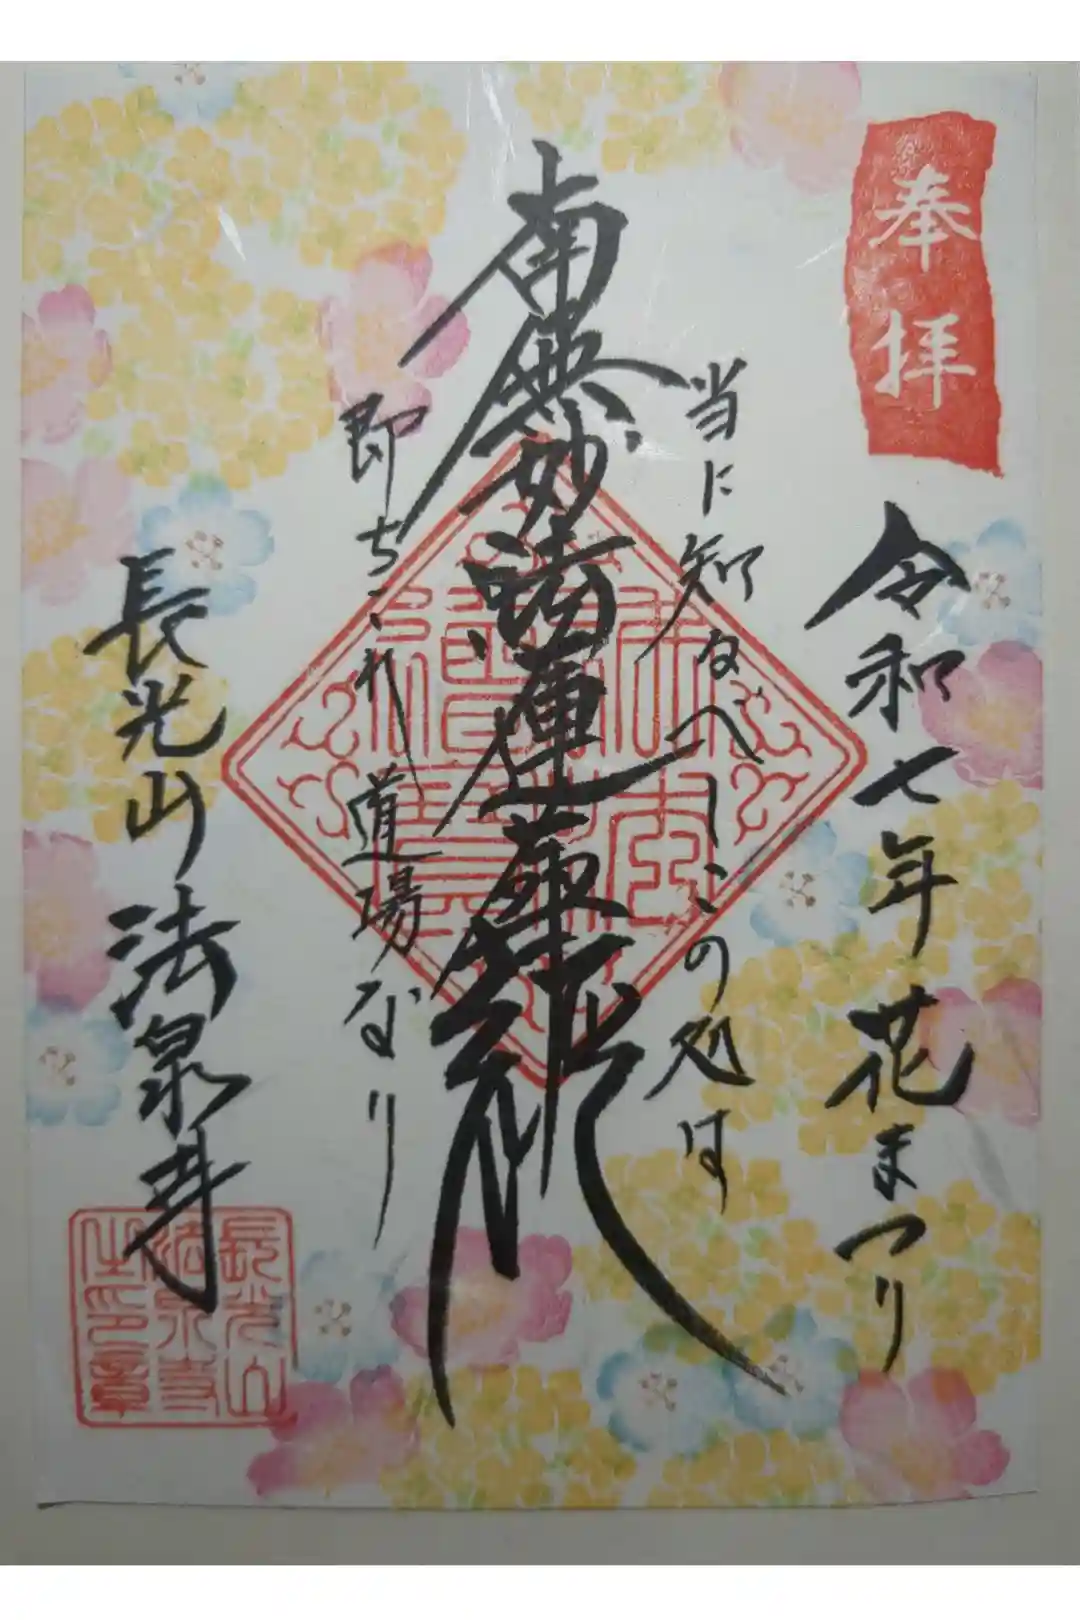 奉拝
令和七年花まつり
当に知るべしこの処は
南無妙法蓮華経
即ちこれ道場なり
長光山法泉寺
長光山
法泉寺
之印章